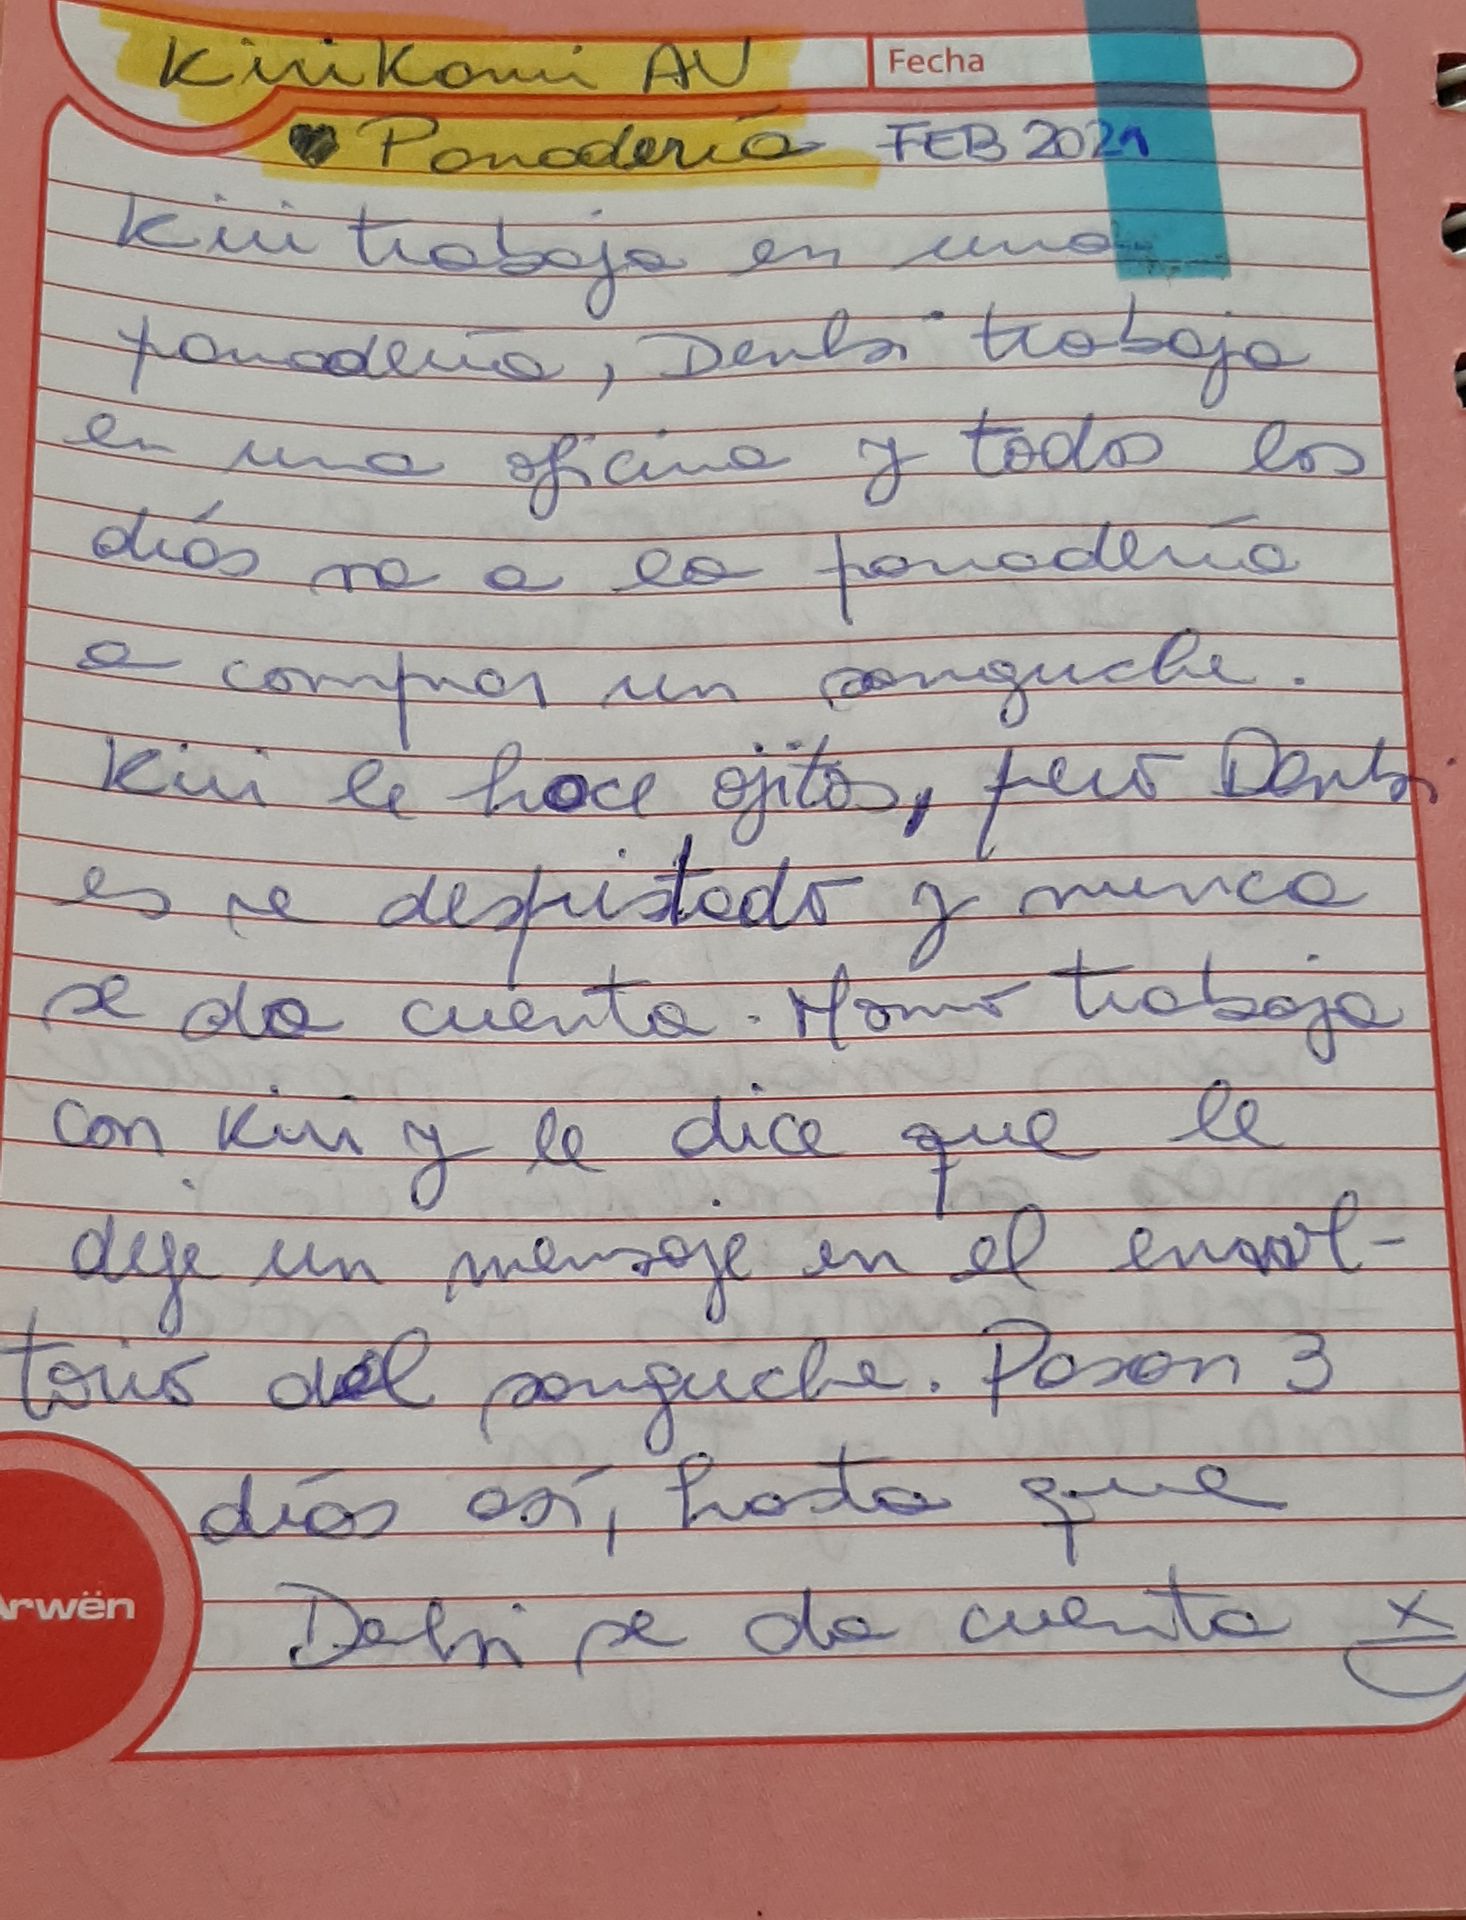 KiriKami AU
Fecha
♥ Panadería FEB 2021
Kiri trabaja en una
panadería, Denki trabaja
en una oficina y todos los
días va a la panadería
a comprar un sanguche.
Kiri le hace ojitos, pero Denki
es re despistado y nunca
se da cuenta. Momo trabaja
con Kiri y le dice que le
deje un mensaje en el envol-
torio del sanguche. Pasan 3
días así, hasta que
Deki se da cuenta x
Arwën